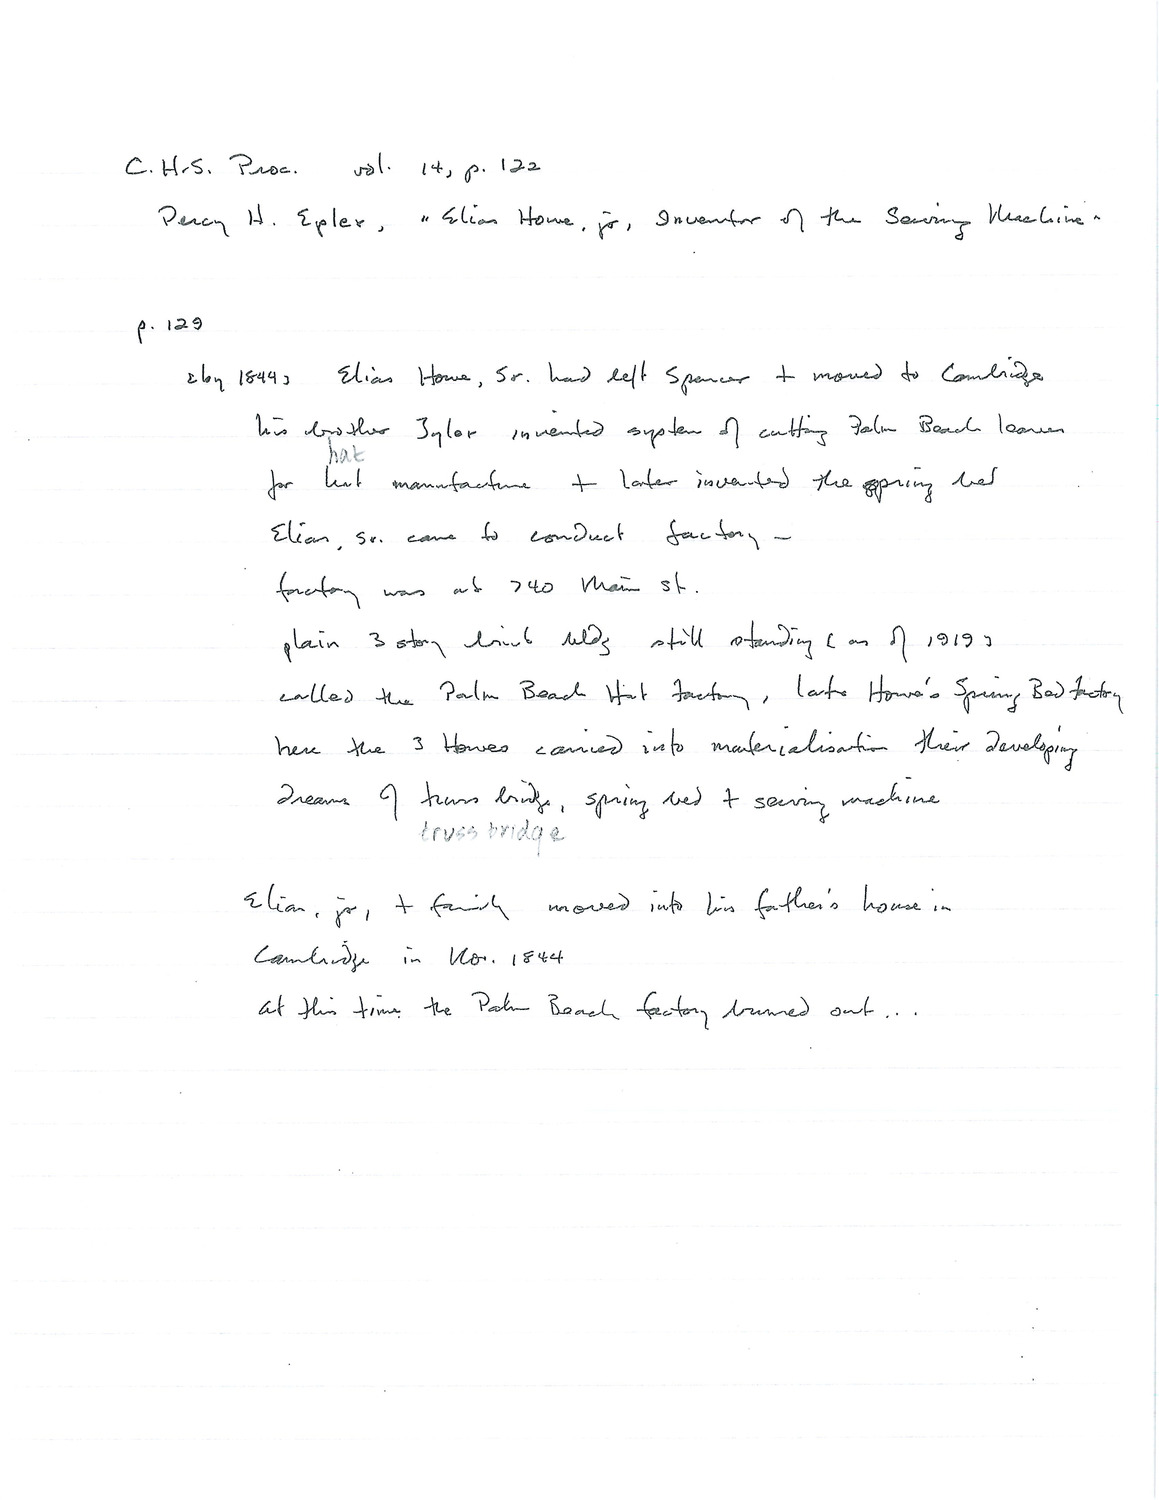 C.H.S. Proc. vol. 14, p. 122
Percy H. Epler, "Elias Howe, jr, Inventor of the Sewing Machine"
p. 129
[by 1844] Elias Howe, Sr. had left Spencer + moved to Cambridge
his brother Tyler invented system of cutting Palm Beach leaves
hat
for hat manufacture + later invented the spring bed
Elias, Sr. came to conduct factory –
factory was at 740 Main st.
plain 3 story brick bldg still standing [as of 1919]
called the Palm Beach Hat Factory, late Howe's Spring Bed factory
here the 3 Howes carried into materialisation their developing
dreams of truss bridge, spring bed + sewing machine
truss bridge
Elias, jr, + family moved into his father's house in
Cambridge in Nov. 1844
at this time the Palm Beach factory burned out...